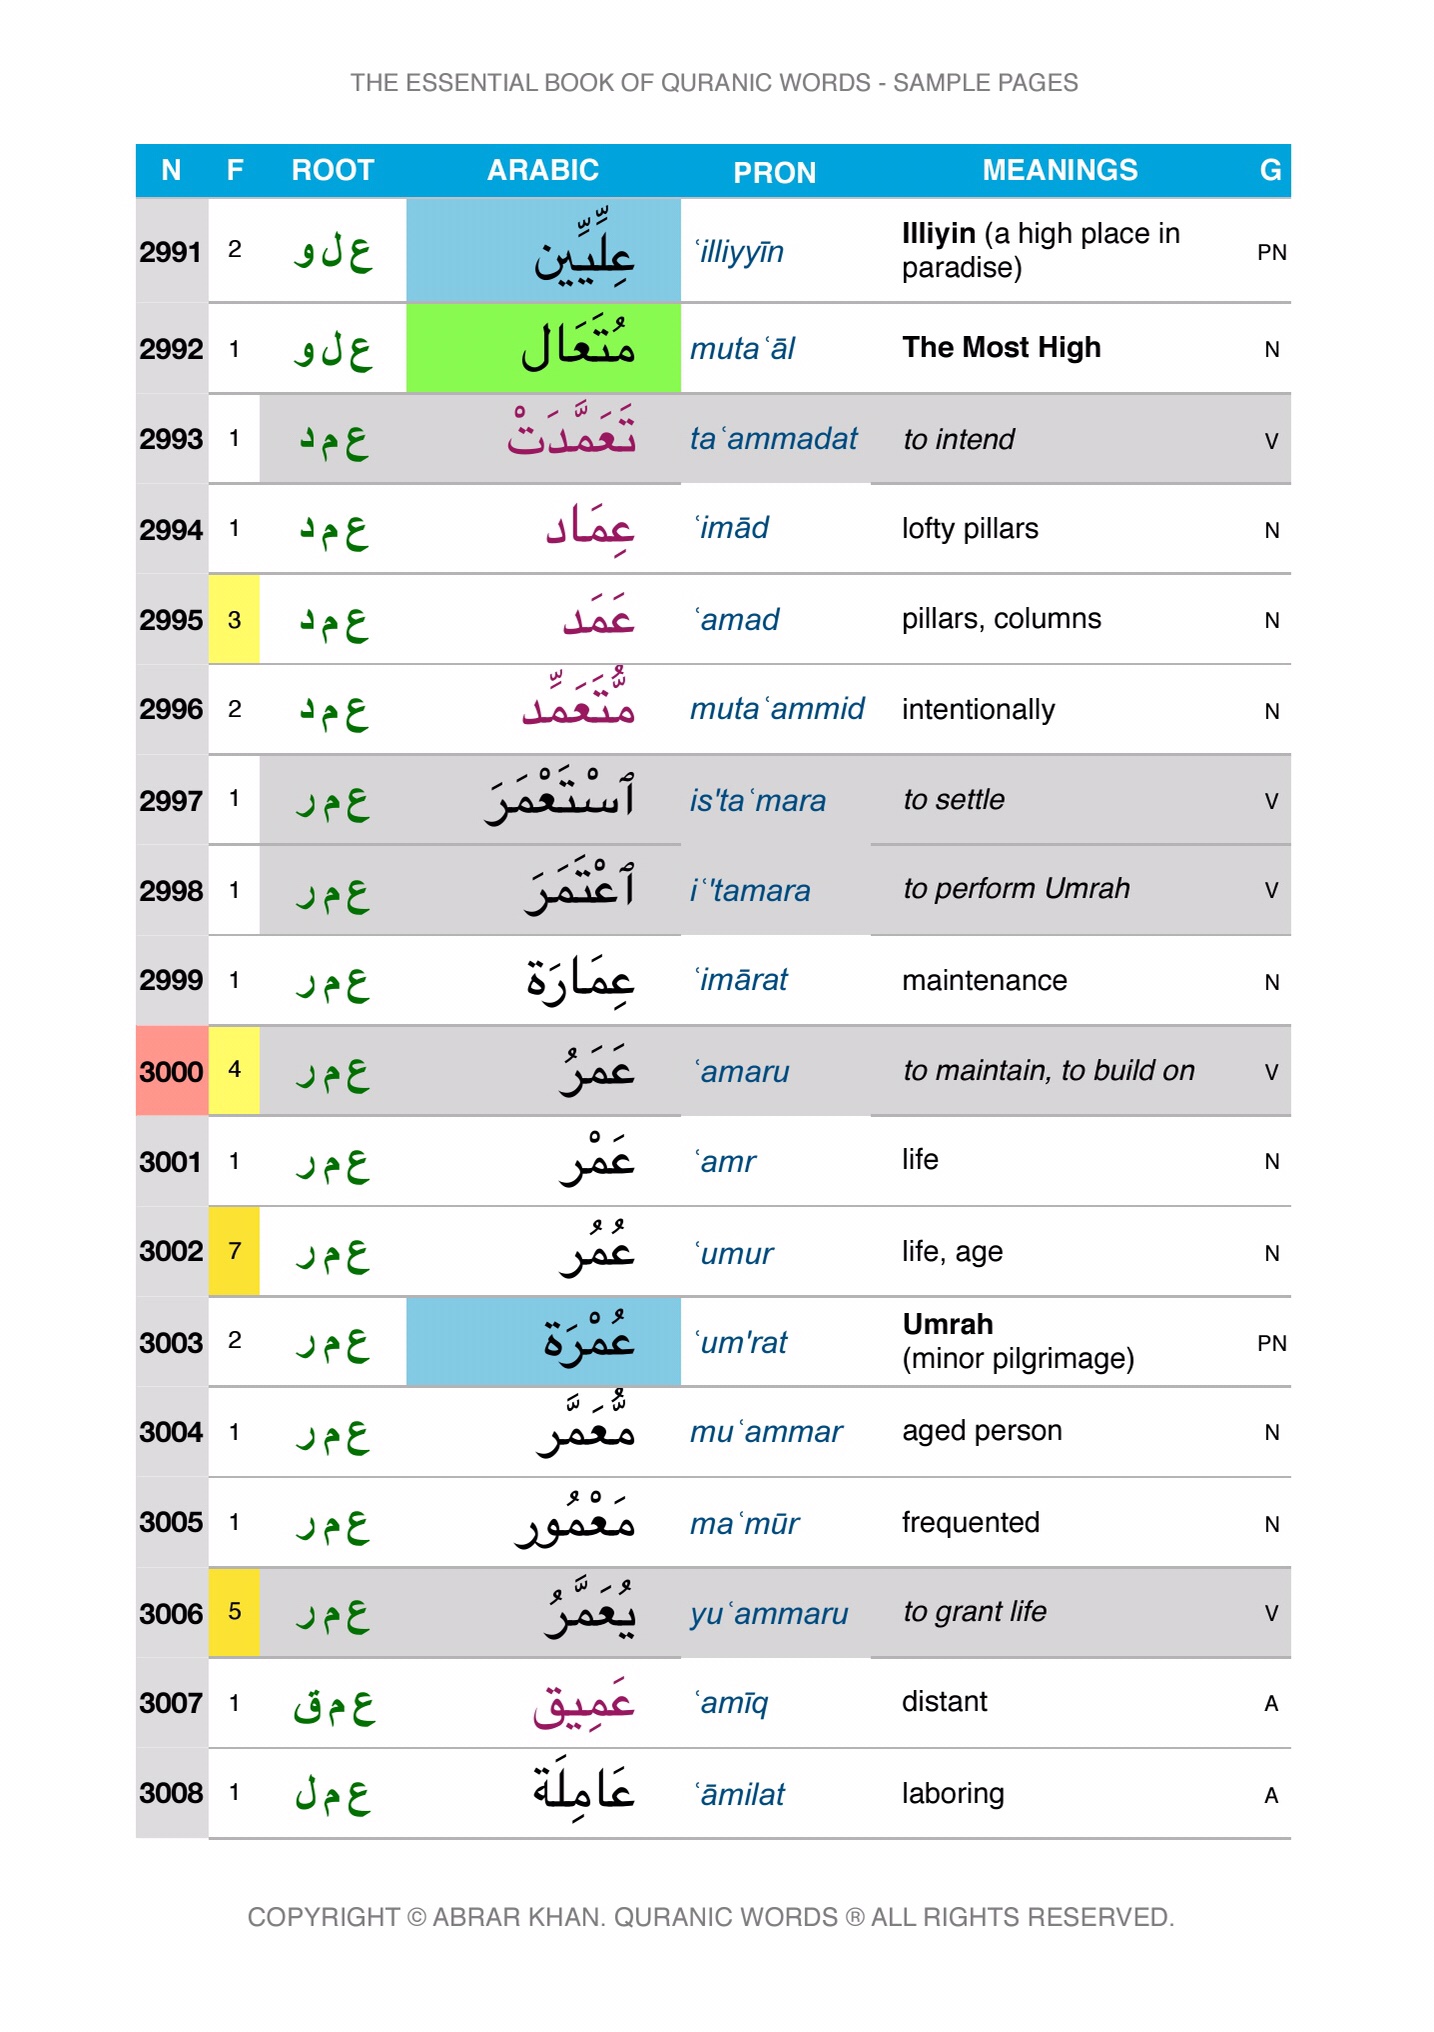 THE ESSENTIAL BOOK OF QURANIC WORDS - SAMPLE PAGES
N F ROOT ARABIC PRON MEANINGS G
2991 2 ع ل و عِلِّيِّين ʿilliyyīn Illiyin (a high place in paradise) PN
2992 1 ع ل و مُتَعَال mutaʿāl The Most High N
2993 1 ع م د تَعَمَّدَتْ taʿammadat to intend V
2994 1 ع م د عِمَاد ʿimād lofty pillars N
2995 3 ع م د عَمَد ʿamad pillars, columns N
2996 2 ع م د مُّتَعَمِّد mutaʿammid intentionally N
2997 1 ع م ر ٱسْتَعْمَرَ is'taʿmara to settle V
2998 1 ع م ر ٱعْتَمَرَ iʿ'tamara to perform Umrah V
2999 1 ع م ر عِمَارَة ʿimārat maintenance N
3000 4 ع م ر عَمَرُ ʿamaru to maintain, to build on V
3001 1 ع م ر عَمْر ʿamr life N
3002 7 ع م ر عُمُر ʿumur life, age N
3003 2 ع م ر عُمْرَة ʿum'rat Umrah (minor pilgrimage) PN
3004 1 ع م ر مُّعَمَّر muʿammar aged person N
3005 1 ع م ر مَعْمُور maʿmūr frequented N
3006 5 ع م ر يُعَمَّرُ yuʿammaru to grant life V
3007 1 ع م ق عَمِيق ʿamīq distant A
3008 1 ع م ل عَامِلَة ʿāmilat laboring A
COPYRIGHT © ABRAR KHAN. QURANIC WORDS ® ALL RIGHTS RESERVED.